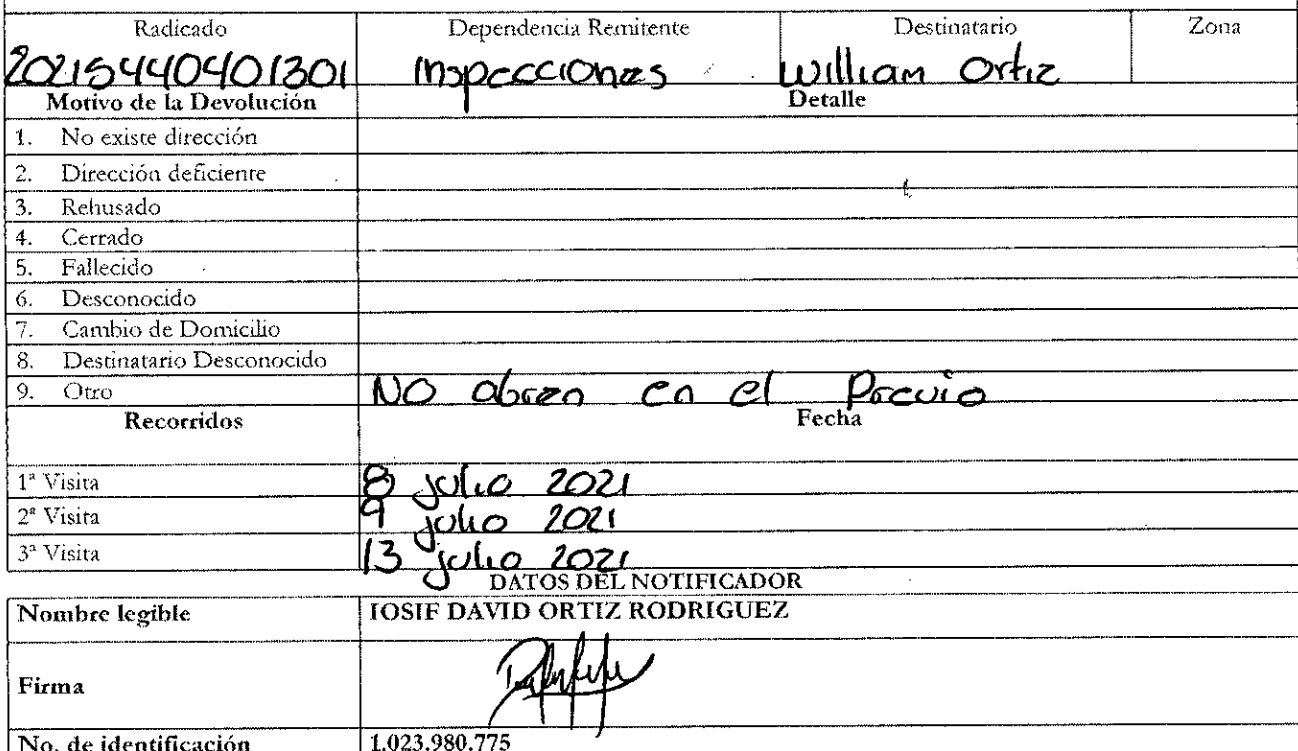 Radicado Dependencia Remitente Destinatario Zona
20215440401301 Inspecciones William Ortiz
Motivo de la Devolución Detalle
1. No existe dirección
2. Dirección deficiente
3. Rehusado
4. Cerrado
5. Fallecido
6. Desconocido
7. Cambio de Domicilio
8. Destinatario Desconocido
9. Otro NO abren en el Previo
Recorridos Fecha
1ª Visita 8 julio 2021
2ª Visita 9 julio 2021
3ª Visita 13 julio 2021
DATOS DEL NOTIFICADOR
Nombre legible IOSIF DAVID ORTIZ RODRIGUEZ
Firma
No. de identificación 1.023.980.775